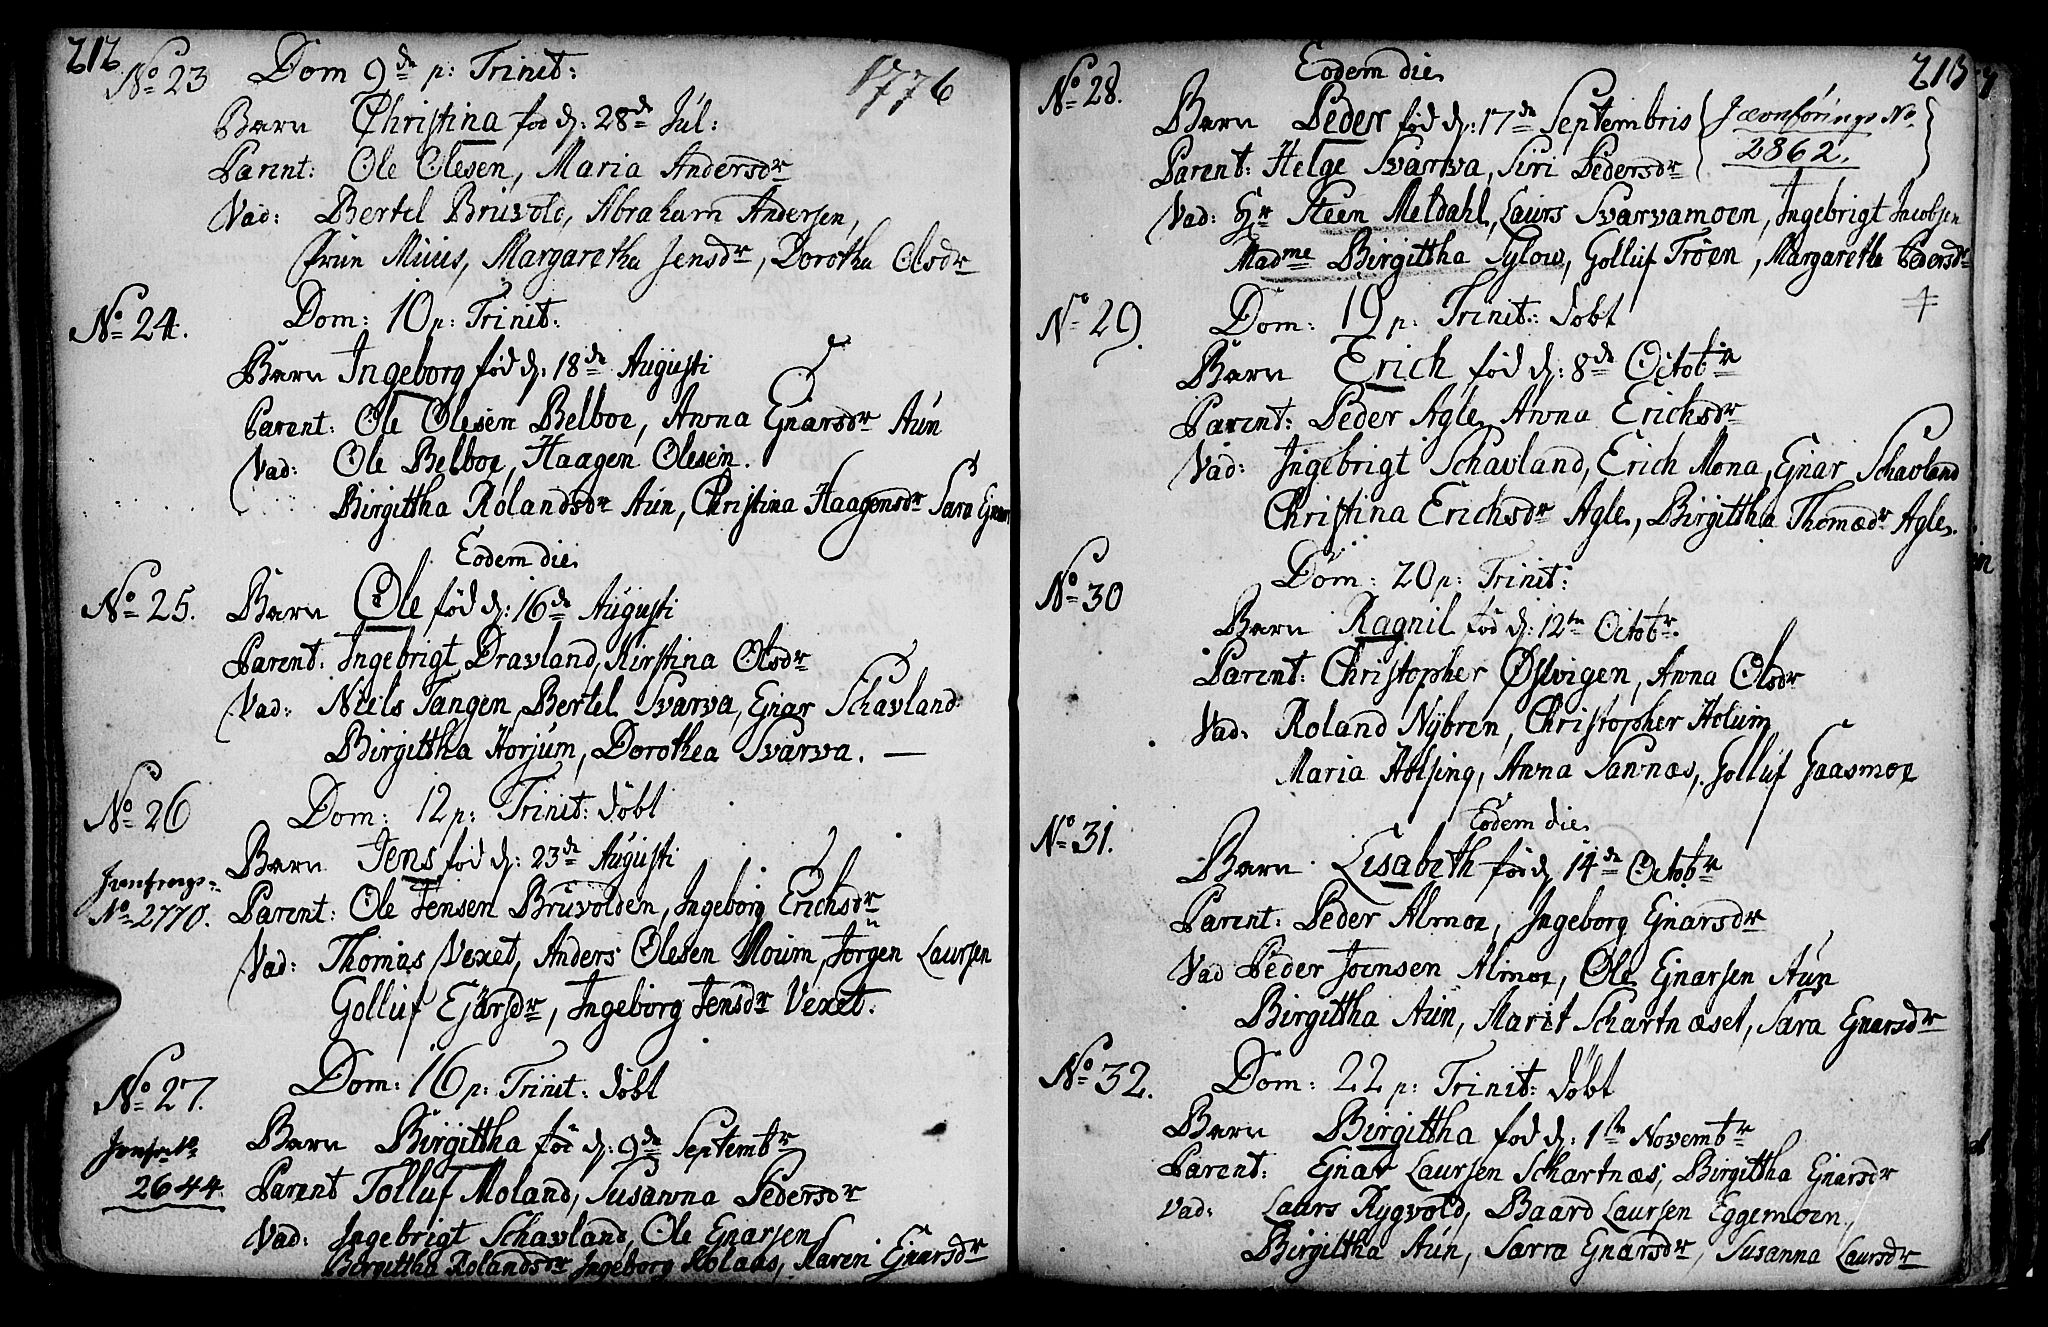 212
1776
No 23 Dom 9de p: Trinit:
Barn Christina fød d: 28de Jul:
Parent: Ole Olesen, Maria Andersdr
Vad: Bertel Bruvold, Abraham Andersen,
Frun Muus, Margaretha Jensdr, Dorothea Olsdr
No 24. Dom: 10 p: Trinit:
Barn Ingeborg fød d: 18de Augusti
Parent: Ole Olesen Belboe, Anna Ejnarsdr Aun
Vad: Ole Belboe, Haagen Olesen.
Birgittha Rolandsdr Aun, Christina Haagensdr Sara Ejnar
Eodem die
No 25. Barn Ole fød d: 16de Augusti
Parent: Ingebrigt Dravland, Kirstina Olsdr
Vad: Niels Tangen, Bertel Svarva, Ejnar Schavland
Birgittha Horjum, Dorothea Svarva.
No 26 Dom: 12 p: Trinit: døbt
Barn Jens fød d: 23de Augusti
No 2770. Parent: Ole Jensen Bruvolden, Ingeborg Erichsdr
Vad: Thomas Vexet, Anders Olesen Moum, Jørgen Laursen
Golluf Ejdrsdr, Ingeborg Jensdr Vexet.
No 27. Dom: 16 p: Trinit: døbt
Barn Birgittha fød d: 9de Septembr
2644 Parent Tolluf Moland, Susanna Pedersdr
Vad: Ingebrigt Schavland, Ole Ejnarsen
Birgittha Rolandsdr Ingeborg Rolaas, Karen Ejnarsdr
213
No 28. Eodem die
Barn Peder fød d: 17de Septembris (Jævnførings No
2862.)
Parent: Helge Svarva, Siri Pedersdr
Vad: Hr Steen Meldahl, Laurs Svarvamoen, Ingebrigt Jacobsen
Madme Birgittha Sylow, Golluf Trøen, Margaretha Pedersdr
No 29. Dom: 19 p: Trinit: døbt
Barn Erich fød d: 8de Octobr
Parent: Peder Agle, Anna Erichsdr
Vad: Ingebrigt Schavland, Erich Mona, Ejnar Schavland
Christina Erichsdr Agle, Birgittha Thomædr Agle.
No 30 Dom: 20 p: Trinit:
Barn Ragnil fød d: 12te Octobr.
Parent: Christopher Østvigen, Anna Olsdr
Vad: Roland Nybren, Christopher Holum
Maria Holsing, Anna Sannæs, Golluf Gaasmoe
Eodem die
No 31. Barn Lisabeth fød d 14de Octobr
Parent: Peder Almoe, Ingeborg Ejnarsdr
Vad Peder Joensen Almoe, Ole Ejnarsen Aun
Birgittha Aun, Marit Schartnæset, Sara Ejnarsdr
No 32. Dom: 22 p: Trinit: døbt
Barn Birgittha fød d: 1te Novembr
Parent: Ejnar Laursen Schartnæs, Birgittha Ejnarsdr
Vad: Laurs Rygvold, Baard Laursen Eggemoen,
Birgittha Aun, Sarra Ejnarsdr, Susanna Laursdr